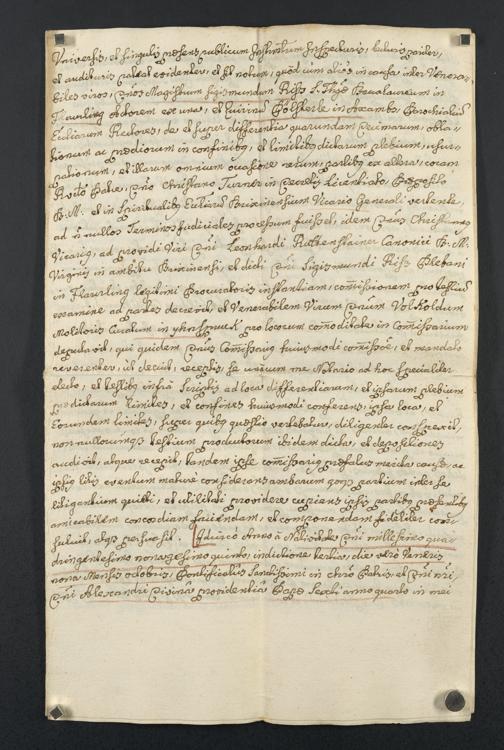 Universis, et singulis præsens publicum Instrũtum Inspecturis, lecturis pariter,
et audituris pateat evidenter, et sit notum, quod cum aliàs in causa inter Venera-
biles viros, Dños Magistrum Sigismundum Riss S. Thæ Bacalaureum in
Flaurling Rectorem ex una, et Quirinũ in Axambs Parochialiũ
Ecclìarum Rectores, de et super differentia quarundam Decimarum, obla-
tionum ac prædiorum in confinibus, et limitibus dictarum plebium, usur-
pationum, et illarum omnium occasione rerum, partibus ex altera, coram
Christiano Turner in Decretis Licentiato, Præposito
B. M. et in Spiritualibus Brixinensium Vicario Generali vertente,
ad nonnullos Terminos Judiciales processum fuisset, idem Dñus Christianus
Vicarius, ad providi Viri Dñi Leonhardi Canonici B. M.
Virginis in ambitu Brixinensi, et dicti Dñi Sigismundi Riss Plebani
in Flaurling Legitimi Procuratoris instantiam, comissionem pro testium
examine ad partes decrevit, et Venerabilem Virum Dñum
Molitoris Curatum in Yhnsprugk pro locorum comoditate in Comissarium
deputavit, qui quidem Dñus Comissarius huiusmodi comissõe, et mandato
reverenter, ut decuit, receptis, se unà cum me Notario ad hoc specialiter
electo, et testibus infra Scriptis ad loca differentiarum, et ipsarum plebium
prædictarum limites, et confines huiusmodi conferens, ipsa loca, et
eorundem limites, super quibus quæstio vertebatur, diligenter conspexit,
nonnullorumque testium productorum ibidem dicta, et depositiones
audivit, atque recepit, tandem ipse comissarius præfatus merita causæ, ac
ipsius litis eventum mature considerans ambarum partium inter se
litigantium quieti, et utilitati providere cupiens ipsis partibus præsentibus
amicabilem concordiam fiendam, et componendam fideliter consu-
luit, persuasit. Anno à Nativitate Dñi millesimo qua-
dringentesimo nonagesimo quinto, indictione tertia, die verò Veneris
nona Mensis octobris, Pontificatus Sanctissimi in chrõ Patris, et Dñi nri,
Dñi Alexandri Divina providentia Papæ Sexti anno quarto in mei